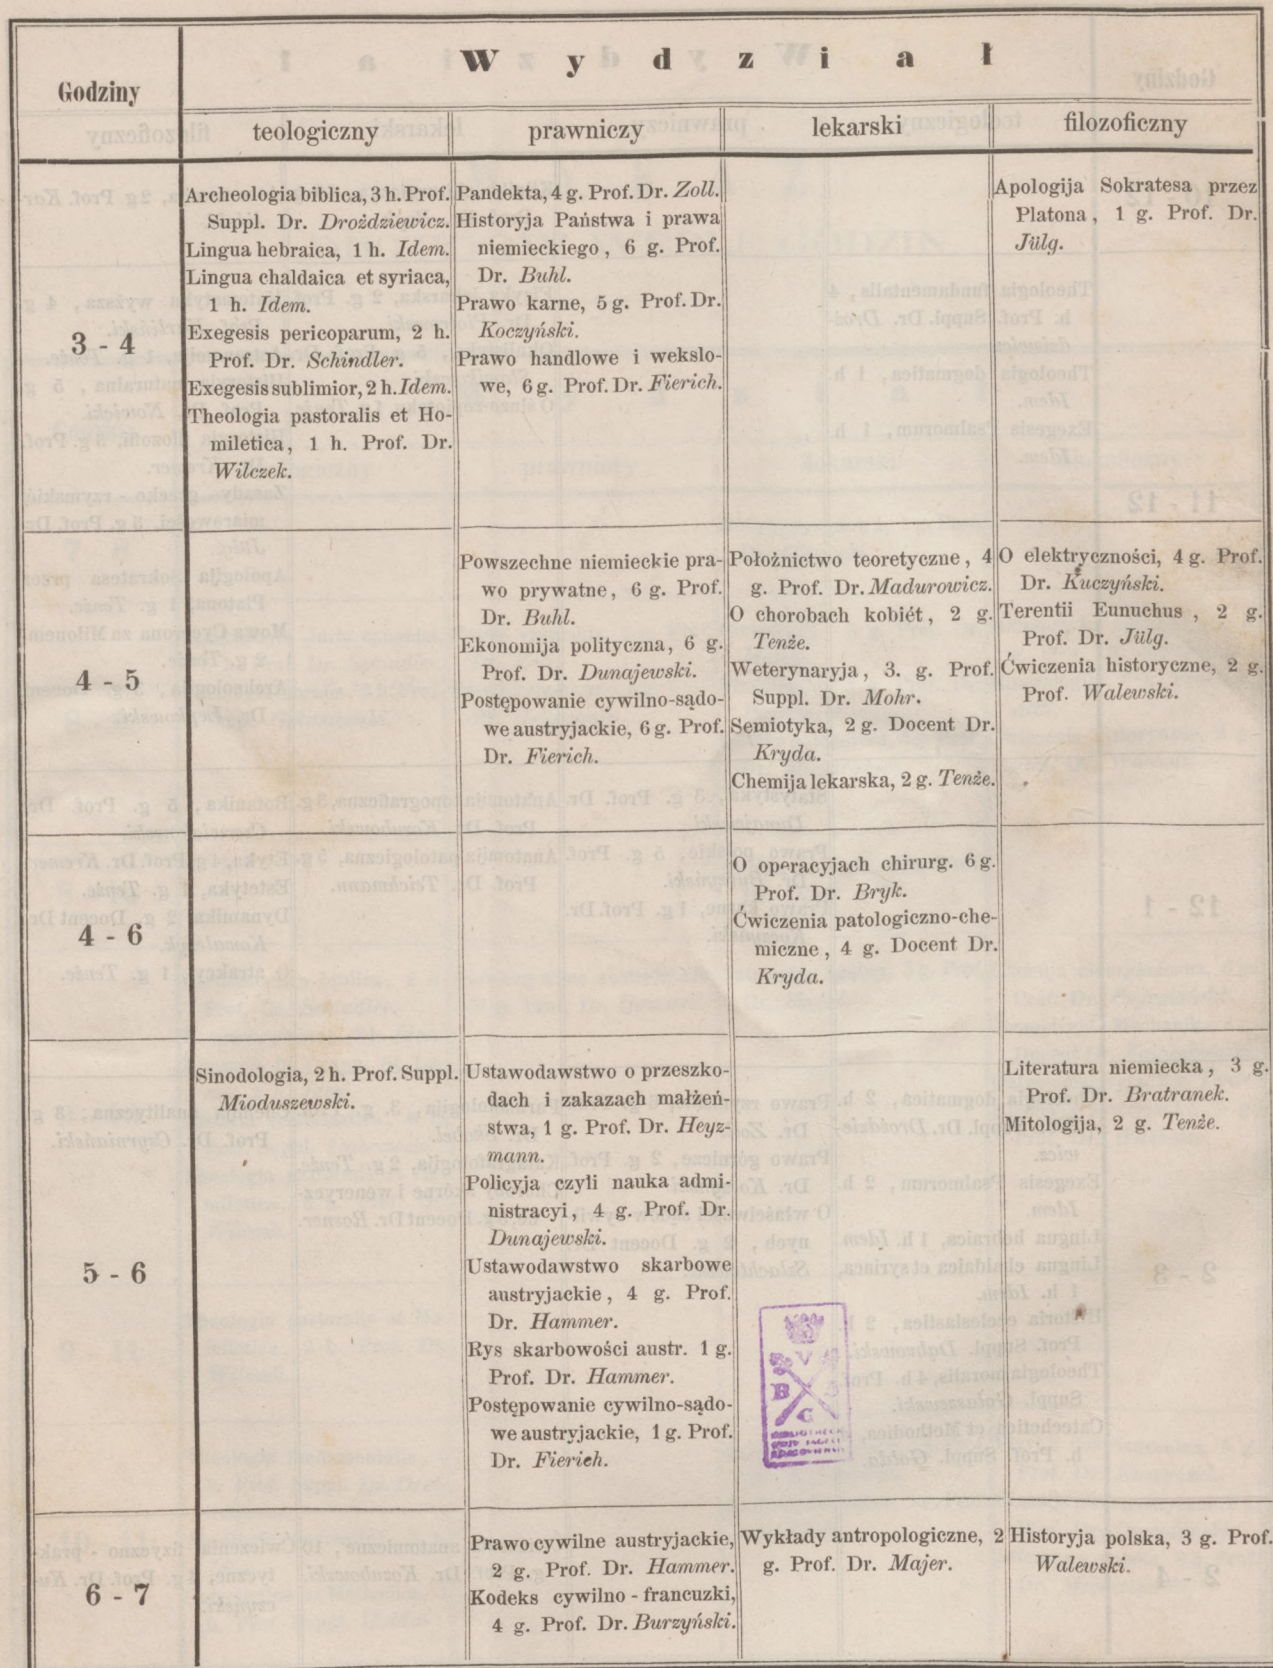 Godziny
Wydział
teologiczny
prawniczy
lekarski
filozoficzny
3 - 4
Archeologia biblica, 3 h. Prof.
Suppl. Dr. Droździewicz.
Lingua hebraica, 1 h. Idem.
Lingua chaldaica et syriaca,
1 h. Idem.
Exegesis pericoparum, 2 h.
Prof. Dr. Schindler.
Exegesis sublimior, 2 h. Idem.
Theologia pastoralis et Ho-
miletica, 1 h. Prof. Dr.
Wilczek.
Pandekta, 4 g. Prof. Dr. Zoll.
Historyja Państwa i prawa
niemieckiego, 6 g. Prof.
Dr. Buhl.
Prawo karne, 5 g. Prof. Dr.
Koczyński.
Prawo handlowe i wekslo-
we, 6 g. Prof. Dr. Fierich.
Apologija Sokratesa przez
Platona, 1 g. Prof. Dr.
Jülg.
4 - 5
Powszechne niemieckie pra-
wo prywatne, 6 g. Prof.
Dr. Buhl.
Ekonomija polityczna, 6 g.
Prof. Dr. Dunajewski.
Postępowanie cywilno-sądo-
we austryjackie, 6 g. Prof.
Dr. Fierich.
Położnictwo teoretyczne, 4
g. Prof. Dr. Madurowicz.
O chorobach kobiét, 2 g.
Tenże.
Weterynaryja, 3. g. Prof.
Suppl. Dr. Mohr.
Semiotyka, 2 g. Docent Dr.
Kryda.
Chemija lekarska, 2 g. Tenże.
O elektryczności, 4 g. Prof.
Dr. Kuczyński.
Terentii Eunuchus, 2 g.
Prof. Dr. Jülg.
Ćwiczenia historyczne, 2 g.
Prof. Walewski.
4 - 6
O operacyjach chirurg. 6 g.
Prof. Dr. Bryk.
Ćwiczenia patologiczno-che-
miczne, 4 g. Docent Dr.
Kryda.
5 - 6
Sinodologia, 2 h. Prof. Suppl.
Mioduszewski.
Ustawodawstwo o przeszko-
dach i zakazach małżeń-
stwa, 1 g. Prof. Dr. Heyz-
mann.
Policyja czyli nauka admi-
nistracyi, 4 g. Prof. Dr.
Dunajewski.
Ustawodawstwo skarbowe
austryjackie, 4 g. Prof.
Dr. Hammer.
Rys skarbowości austr. 1 g.
Prof. Dr. Hammer.
Postępowanie cywilno-sądo-
we austryjackie, 1 g. Prof.
Dr. Fierich.
Literatura niemiecka, 3 g.
Prof. Dr. Bratranek.
Mitologija, 2 g. Tenże.
6 - 7
Prawo cywilne austryjackie,
2 g. Prof. Dr. Hammer.
Kodeks cywilno - francuzki,
4 g. Prof. Dr. Burzyński.
Wykłady antropologiczne, 2
g. Prof. Dr. Majer.
Historyja polska, 3 g. Prof.
Walewski.